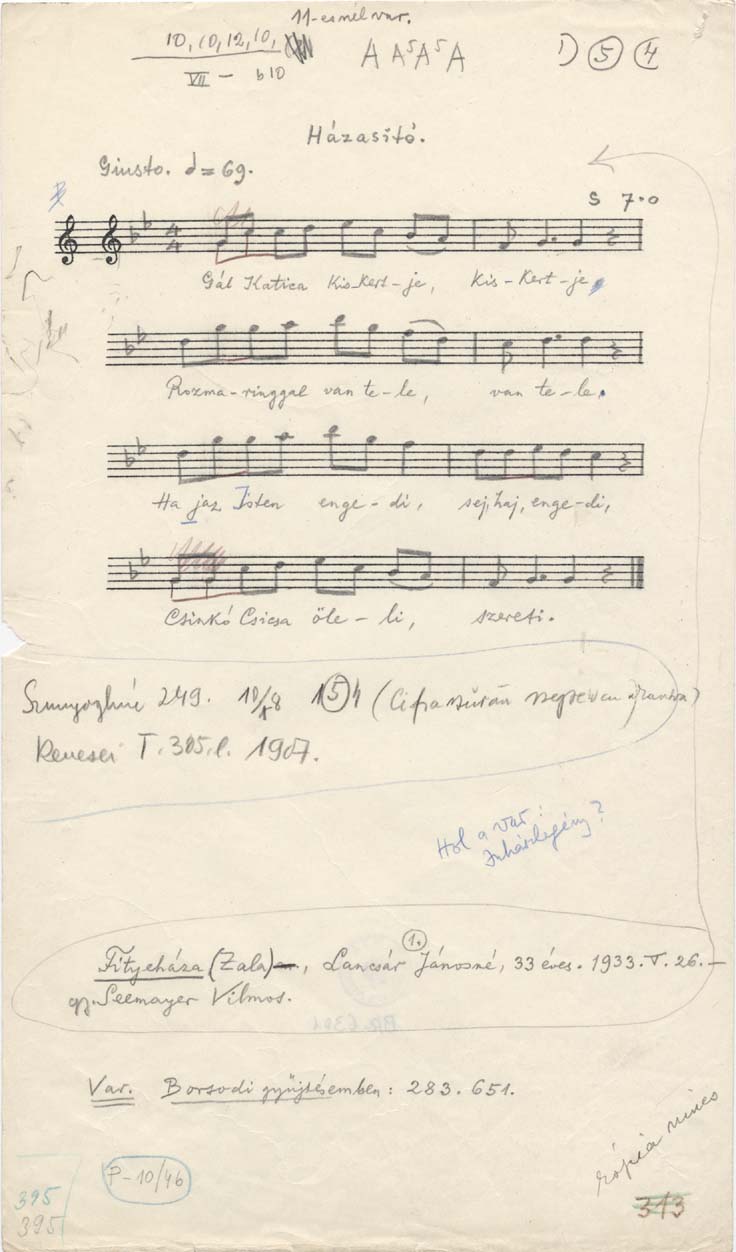 11-esnél var.
10, 10, 12, 10,
VII — b10
A A⁵ A⁵ A
1) 5 4
Házasító.
Giusto. 𝅗𝅥 = 69.
S 7·0
4
4
Gál Katica Kis-Kert-je, Kis-Kert-je,
Rozma-ringgal van te-le, van te-le.
Ha jaz Isten enge-di, sej, haj, enge-di,
Csinkó Csicsa öle-li, szereti.
249. 10/8 1 5 4 (
T. 385. l. 1907.
Hol a var:
Juhászlegény?
1.
Fityeháza (Zala), Lancsár Jánosné, 33 éves. 1933. V. 26.—
gy. Seemayer Vilmos.
Var. Borsodi gyűjtésemben: 283. 651.
kópia nincs
P-10/46
395
395
313